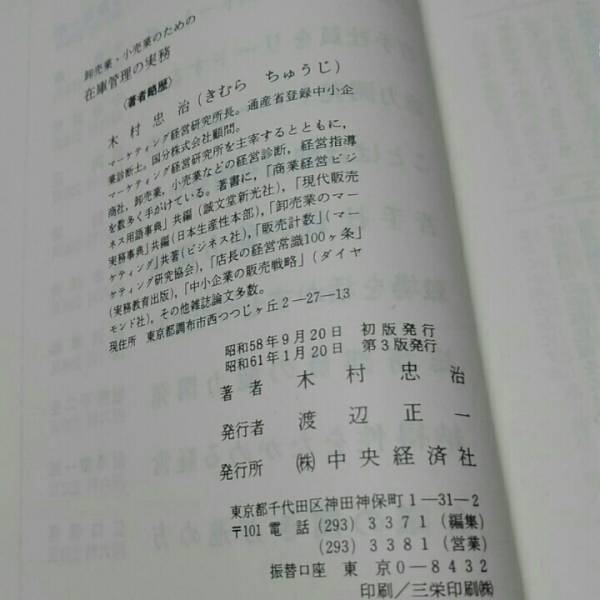 卸売業・小売業のための
在庫管理の実務
〈著者略歴〉
木村忠治(きむら ちゅうじ)
マーケティング経営研究所長。通産省登録中小企
業診断士。国分株式会社顧問。
マーケティング経営研究所を主宰するとともに,
商社, 卸売業, 小売業などの経営診断, 経営指導
を数多く手がけている。著書に,「商業経営ビジ
ネス用語事典」共編(誠文堂新光社),「現代販売
実務事典」共編(日本生産性本部),「卸売業のマー
ケティング」共著(ビジネス社),「販売計数」(マー
ケティング研究協会),「店長の経営常識100ヶ条」
(実務教育出版),「中小企業の販売戦略」(ダイヤ
モンド社), その他雑誌論文多数。
現住所 東京都調布市西つつじヶ丘2—27—13
昭和58年9月20日 初版発行
昭和61年1月20日 第3版発行
著者 木村忠治
発行者 渡辺正一
発行所 ㈱中央経済社
東京都千代田区神田神保町1—31—2
〒101 電話 (293) 3371(編集)
(293) 3381(営業)
振替口座 東京0—8432
印刷/三栄印刷㈱